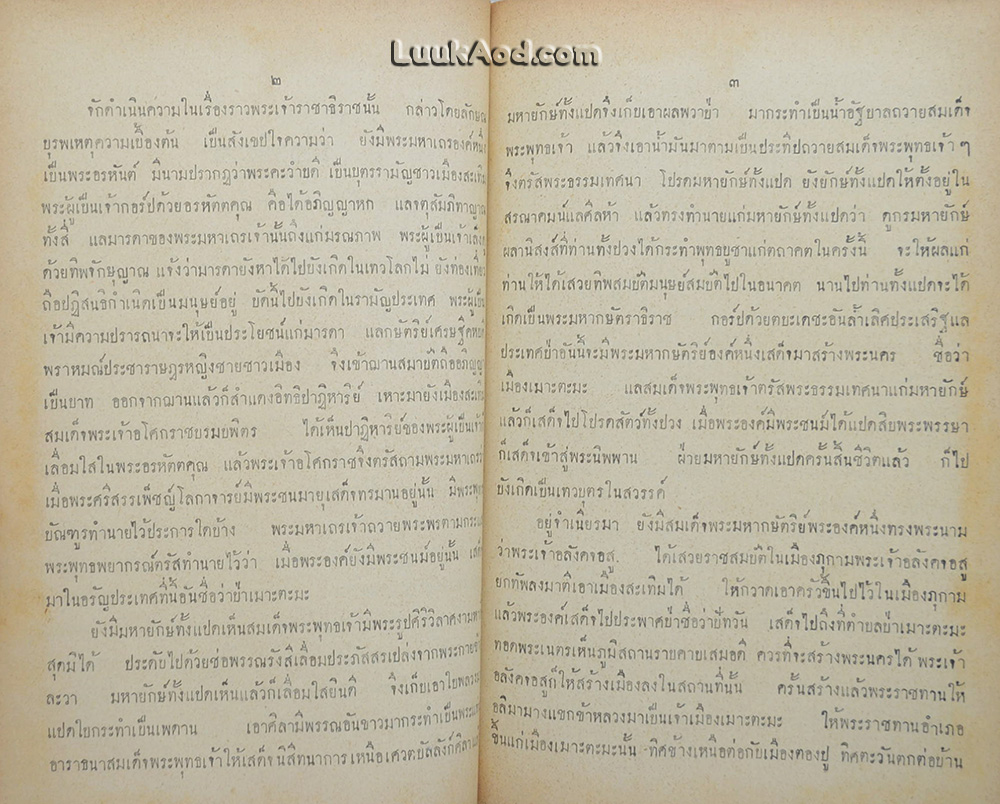 LuukAod.com
๒
จักดำเนินความในเรื่องราวพระเจ้าราชาธิราชนั้น กล่าวโดยลักษณ
บุรพเหตุความเบื้องต้น เป็นสังเขปใจความว่า ยังมีพระมหาเถรองค์หนึ่ง
เป็นพระอรหันต์ มีนามปรากฏว่าพระคะวำบดี เป็นบุตรรามัญชาวเมืองสะเทิม
พระผู้เป็นเจ้ากอร์ปด้วยอรหัตตคุณ คือได้อภิญญาหก แลจตุสัมภิทาญาณ
ทั้งสี่ แลมารดาของพระมหาเถรเจ้านั้นถึงแก่มรณภาพ พระผู้เป็นเจ้าเล็งดู
ด้วยทิพจักษุญาณ แจ้งว่ามารดายังหาได้ไปยังเกิดในเทวโลกไม่ ยังท่องเที่ยว
ถือปฏิสนธิกำเนิดเป็นมนุษย์อยู่ บัดนี้ไปยังเกิดในรามัญประเทศ พระผู้เป็น
เจ้ามีความปรารถนาจะให้เป็นประโยชน์แก่มารดา แลกษัตริย์เศรษฐีคหบดี
พราหมณ์ประชาราษฎรหญิงชายชาวเมือง จึงเข้าฌานสมาบัติถืออภิญญา
เป็นบาท ออกจากฌานแล้วก็สำแดงอิทธิปาฏิหาริย์ เหาะมายังเมืองสะเทิม
สมเด็จพระเจ้าอโศกราชบรมบพิตร ได้เห็นปาฏิหาริย์ของพระผู้เป็นเจ้าก็
เลื่อมใสในพระอรหัตตคุณ แล้วพระเจ้าอโศกราชจึงตรัสถามพระมหาเถรว่า
เมื่อพระศรีสรรเพ็ชญ์โลกาจารย์มีพระชนมายุเสด็จทรมานอยู่นั้น มีพระพุทธ
บัณฑูรทำนายไว้ประการใดบ้าง พระมหาเถรเจ้าถวายพระพรตามกระแส
พระพุทธพยากรณ์ตรัสทำนายไว้ว่า เมื่อพระองค์ยังมีพระชนม์อยู่นั้น เสด็จ
มาในอรัญประเทศที่นี้อันชื่อว่าป่าเมาะตะมะ
ยังมีมหายักษ์ทั้งแปดเห็นสมเด็จพระพุทธเจ้ามีพระรูปศิริวิลาศงามหาที่
สุดมิได้ ประดับไปด้วยช่อพรรณรังสีเลื่อมประภัสสรเปล่งจากพระกายข้าง
ละวา มหายักษ์ทั้งแปดเห็นแล้วก็เลื่อมใสยินดี จึงเก็บเอาใบพลวง
แปดใบกระทำเป็นเพดาน เอาศิลามีพรรณอันขาวมากระทำเป็นพระแท่น
อาราธนาสมเด็จพระพุทธเจ้าให้เสด็จนิสีทนาการเหนือเศวตบัลลังก์ศิลา
๓
มหายักษ์ทั้งแปดจึงเก็บเอาผลพวาป่า มากระทำเป็นน้ำอัฐบาลถวายสมเด็จ
พระพุทธเจ้า แล้วจึงเอาน้ำมันมาตามเป็นประทีปถวายสมเด็จพระพุทธเจ้า ๆ
จึงตรัสพระธรรมเทศนา โปรดมหายักษ์ทั้งแปด ยังยักษ์ทั้งแปดให้ตั้งอยู่ใน
สรณาคมน์แลศีลห้า แล้วทรงทำนายแก่มหายักษ์ทั้งแปดว่า ดูกรมหายักษ์
ผลานิสงส์ที่ท่านทั้งปวงได้กระทำพุทธบูชาแก่ตถาคตในครั้งนี้ จะให้ผลแก่
ท่านให้ได้เสวยทิพสมบัติมนุษย์สมบัติไปในอนาคต นานไปท่านทั้งแปดจะได้
เกิดเป็นพระมหากษัตราธิราช กอร์ปด้วยตบะเดชะอันล้ำเลิศประเสริฐแล
ประเทศป่าอันนี้จะมีพระมหากษัตริย์องค์หนึ่งเสด็จมาสร้างพระนคร ชื่อว่า
เมืองเมาะตะมะ แลสมเด็จพระพุทธเจ้าตรัสพระธรรมเทศนาแก่มหายักษ์
แล้วก็เสด็จไปโปรดสัตว์ทั้งปวง เมื่อพระองค์มีพระชนม์ได้แปดสิบพระพรรษา
ก็เสด็จเข้าสู่พระนิพพาน ฝ่ายมหายักษ์ทั้งแปดครั้นสิ้นชีวิตแล้ว ก็ไป
บังเกิดเป็นเทวบุตรในสวรรค์
อยู่จำเนียรมา ยังมีสมเด็จพระมหากษัตริย์พระองค์หนึ่งทรงพระนาม
ว่าพระเจ้าอลังคจอสู. ได้เสวยราชสมบัติในเมืองภุกามพระเจ้าอลังคจอสู
ยกทัพลงมาตีเอาเมืองสะเทิมได้ ให้กวาดเอาครัวขึ้นไปไว้ในเมืองภุกาม
แล้วพระองค์เสด็จไปประพาศป่าชื่อว่าบัทวัน เสด็จไปถึงที่ตำบลป่าเมาะตะมะ
ทอดพระเนตรเห็นภูมิสถานราบคาบเสมอดี ควรที่จะสร้างพระนครได้ พระเจ้า
อลังคจอสูก็ให้สร้างเมืองลงในสถานที่นั้น ครั้นสร้างแล้วพระราชทานให้
อลิมามางแซกข้าหลวงมาเป็นเจ้าเมืองเมาะตะมะ ให้พระราชทานอำเภอ
ขึ้นแก่เมืองเมาะตะมะนั้น ทิศข้างเหนือต่อกับเมืองตองปู ทิศตะวันตกต่อบ้าน